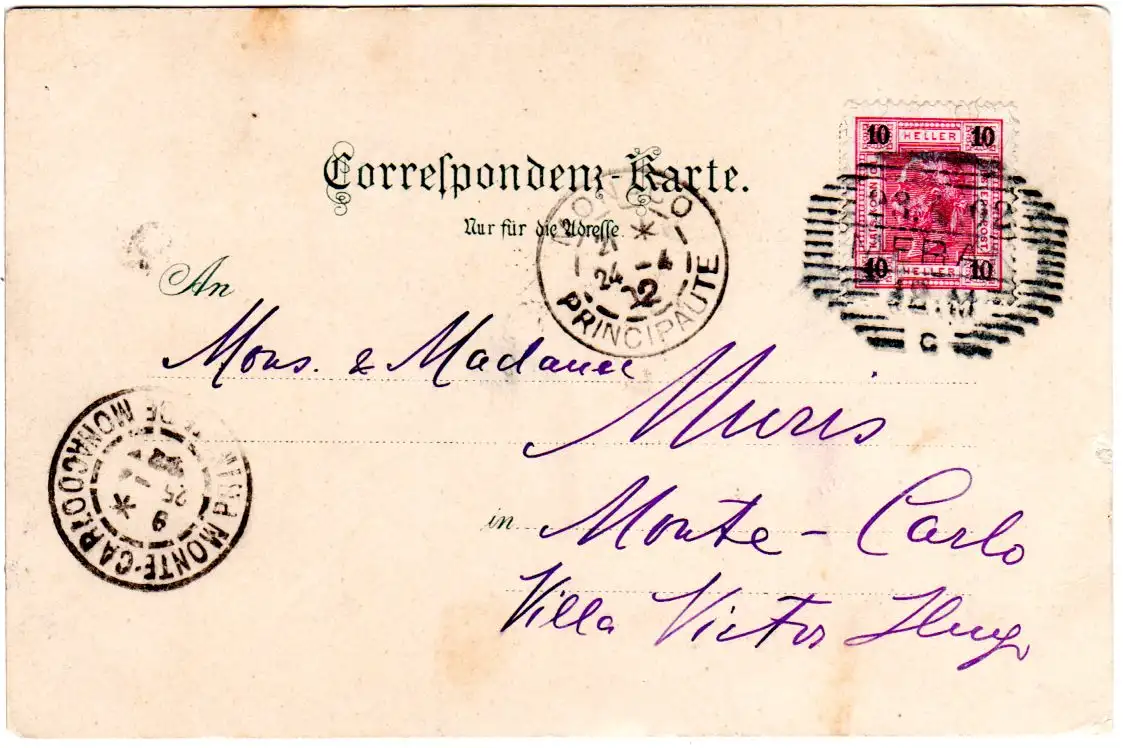 10 HELLER 10
Correspondenz-Karte.
Nur für die Adresse.
MONACO
24 - 4
PRINCIPAUTE
10 HELLER 10
12.M
C
An
Mons. & Madame
Muris
MONTE-CARLO
25
9
in Monte-Carlo
Villa Victor Hugo